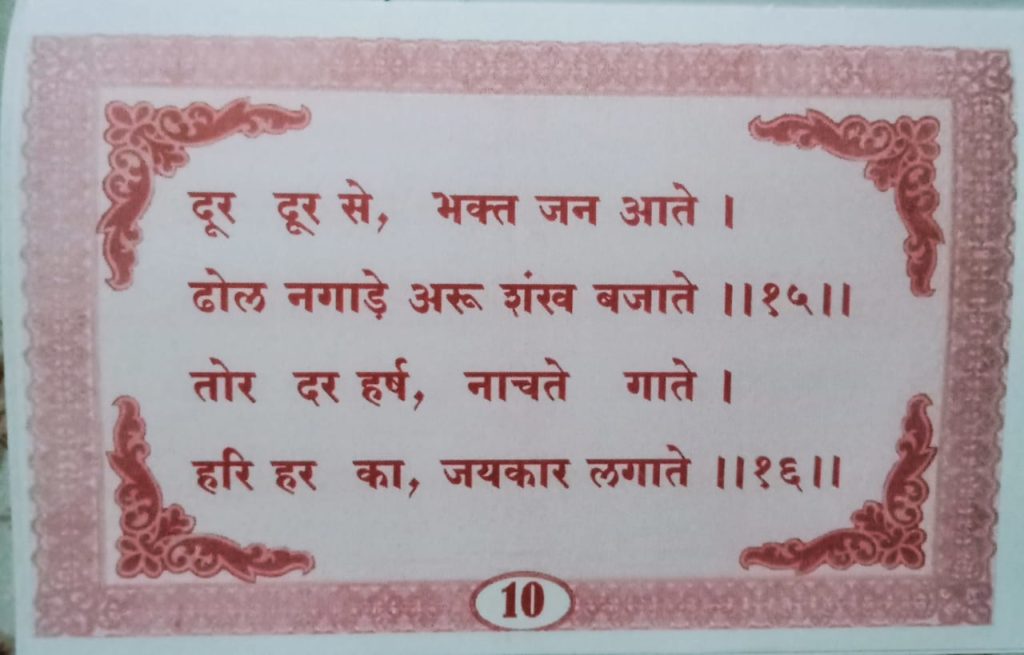 दूर दूर से, भक्त जन आते ।
ढोल नगाड़े अरू शंख बजाते ।।१५।।
तोर दर हर्ष, नाचते गाते ।
हरि हर का, जयकार लगाते ।।१६।।
10